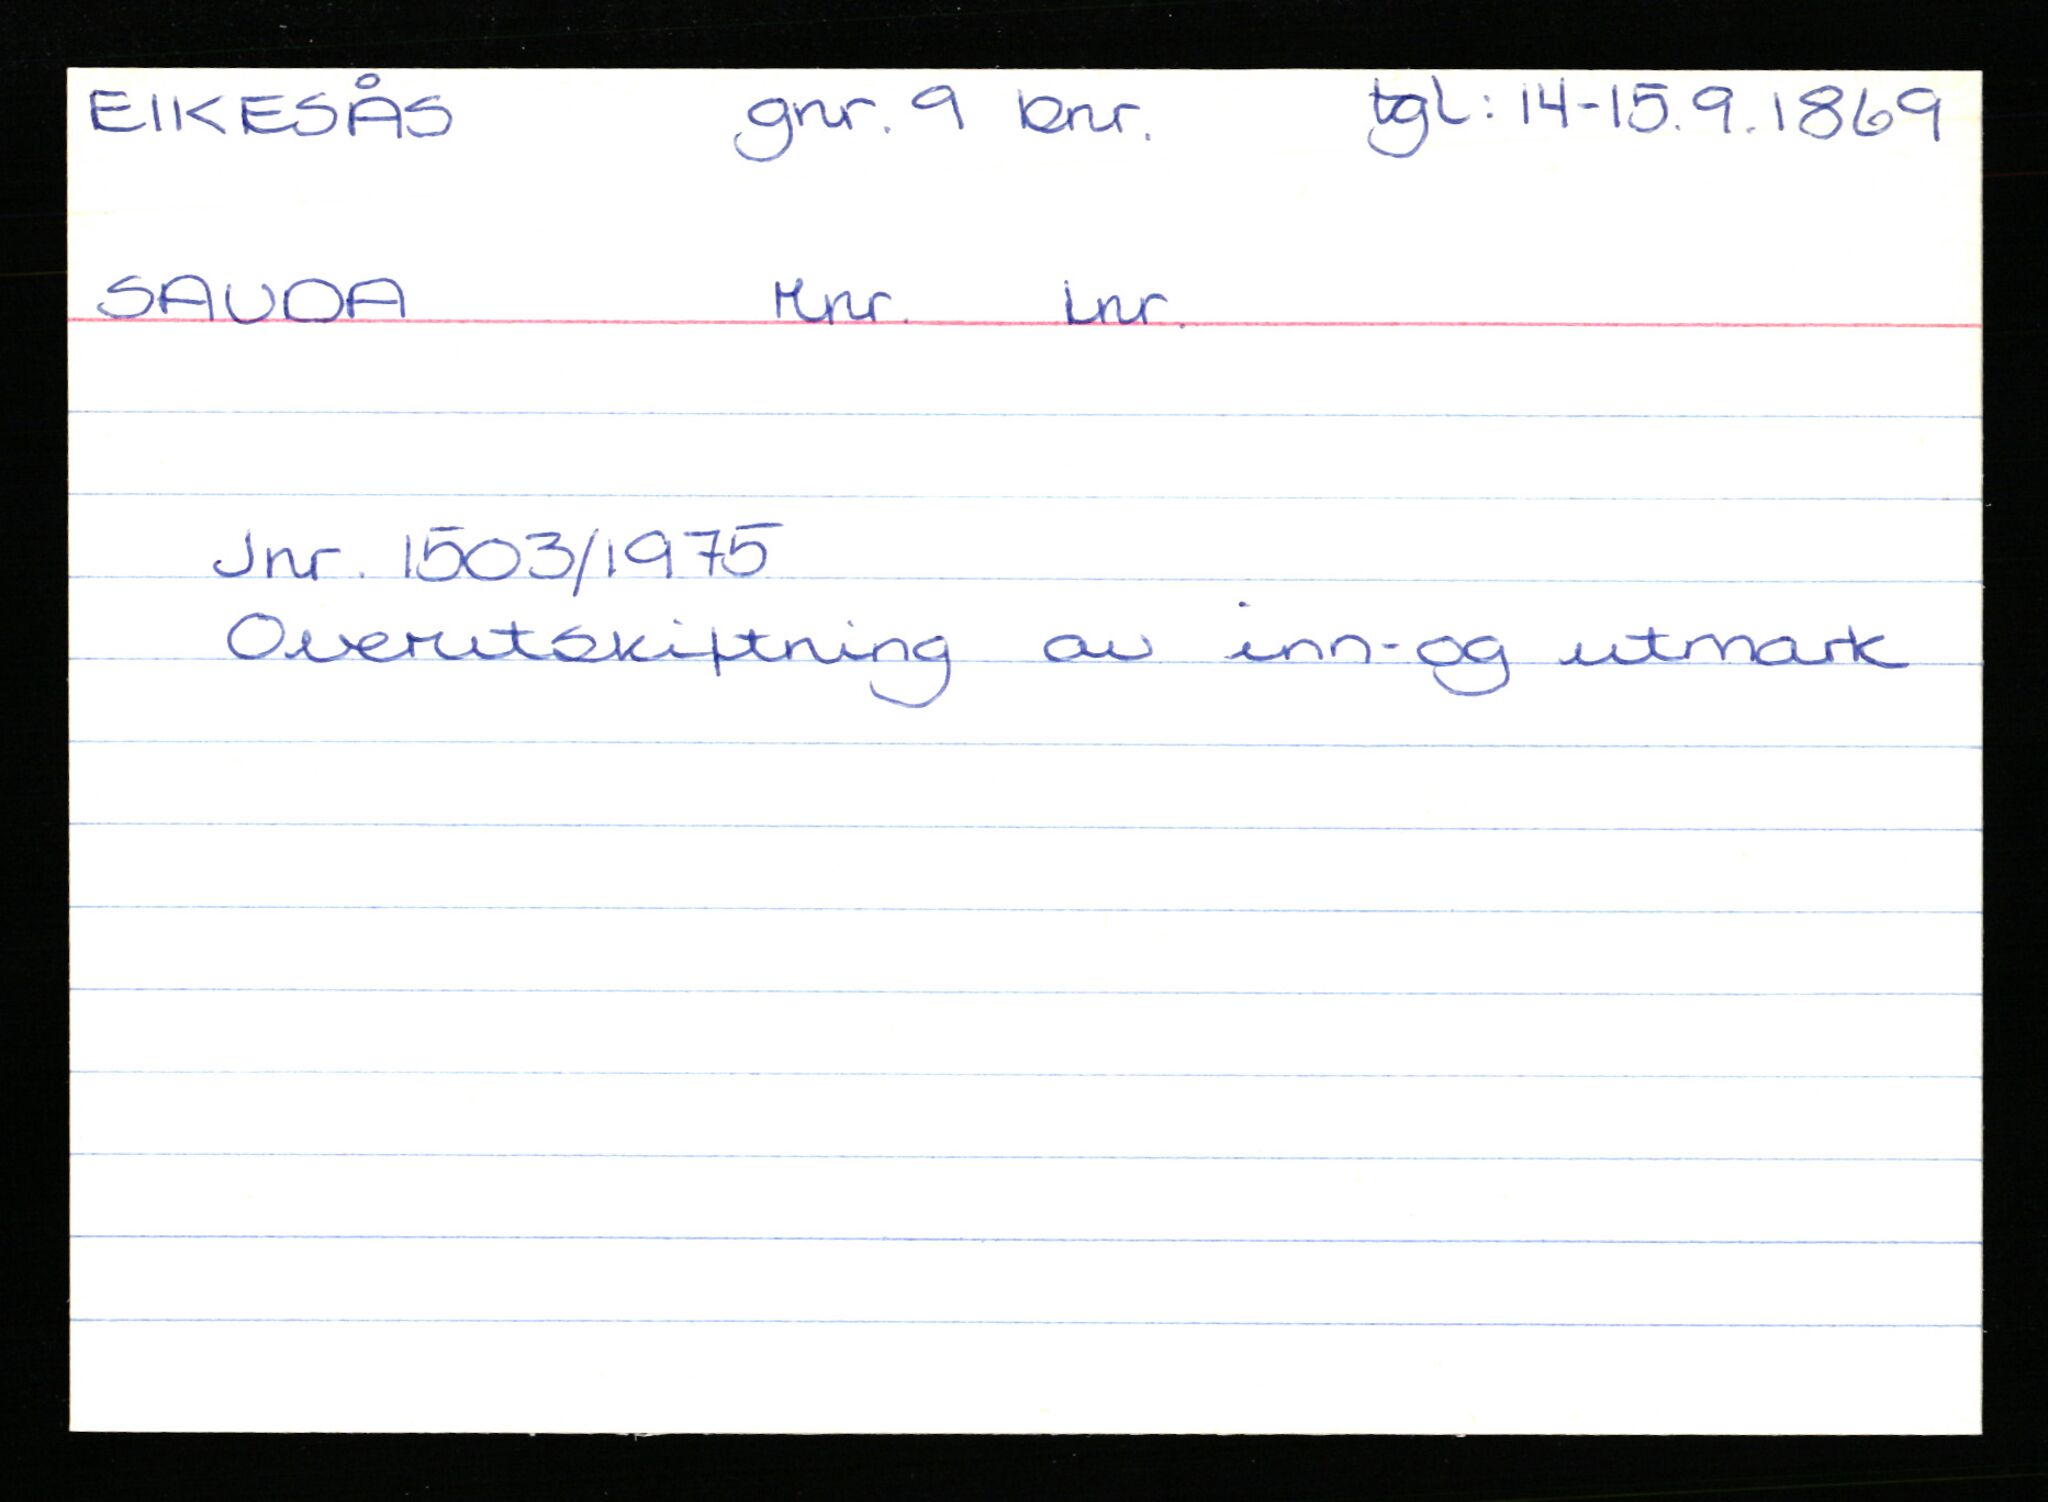 EIKESÅS gnr. 9 bnr. tgl: 14-15.9.1869
SAUDA Mnr. Lnr.
Jnr. 1503/1975
Overutskiftning av inn-og utmark